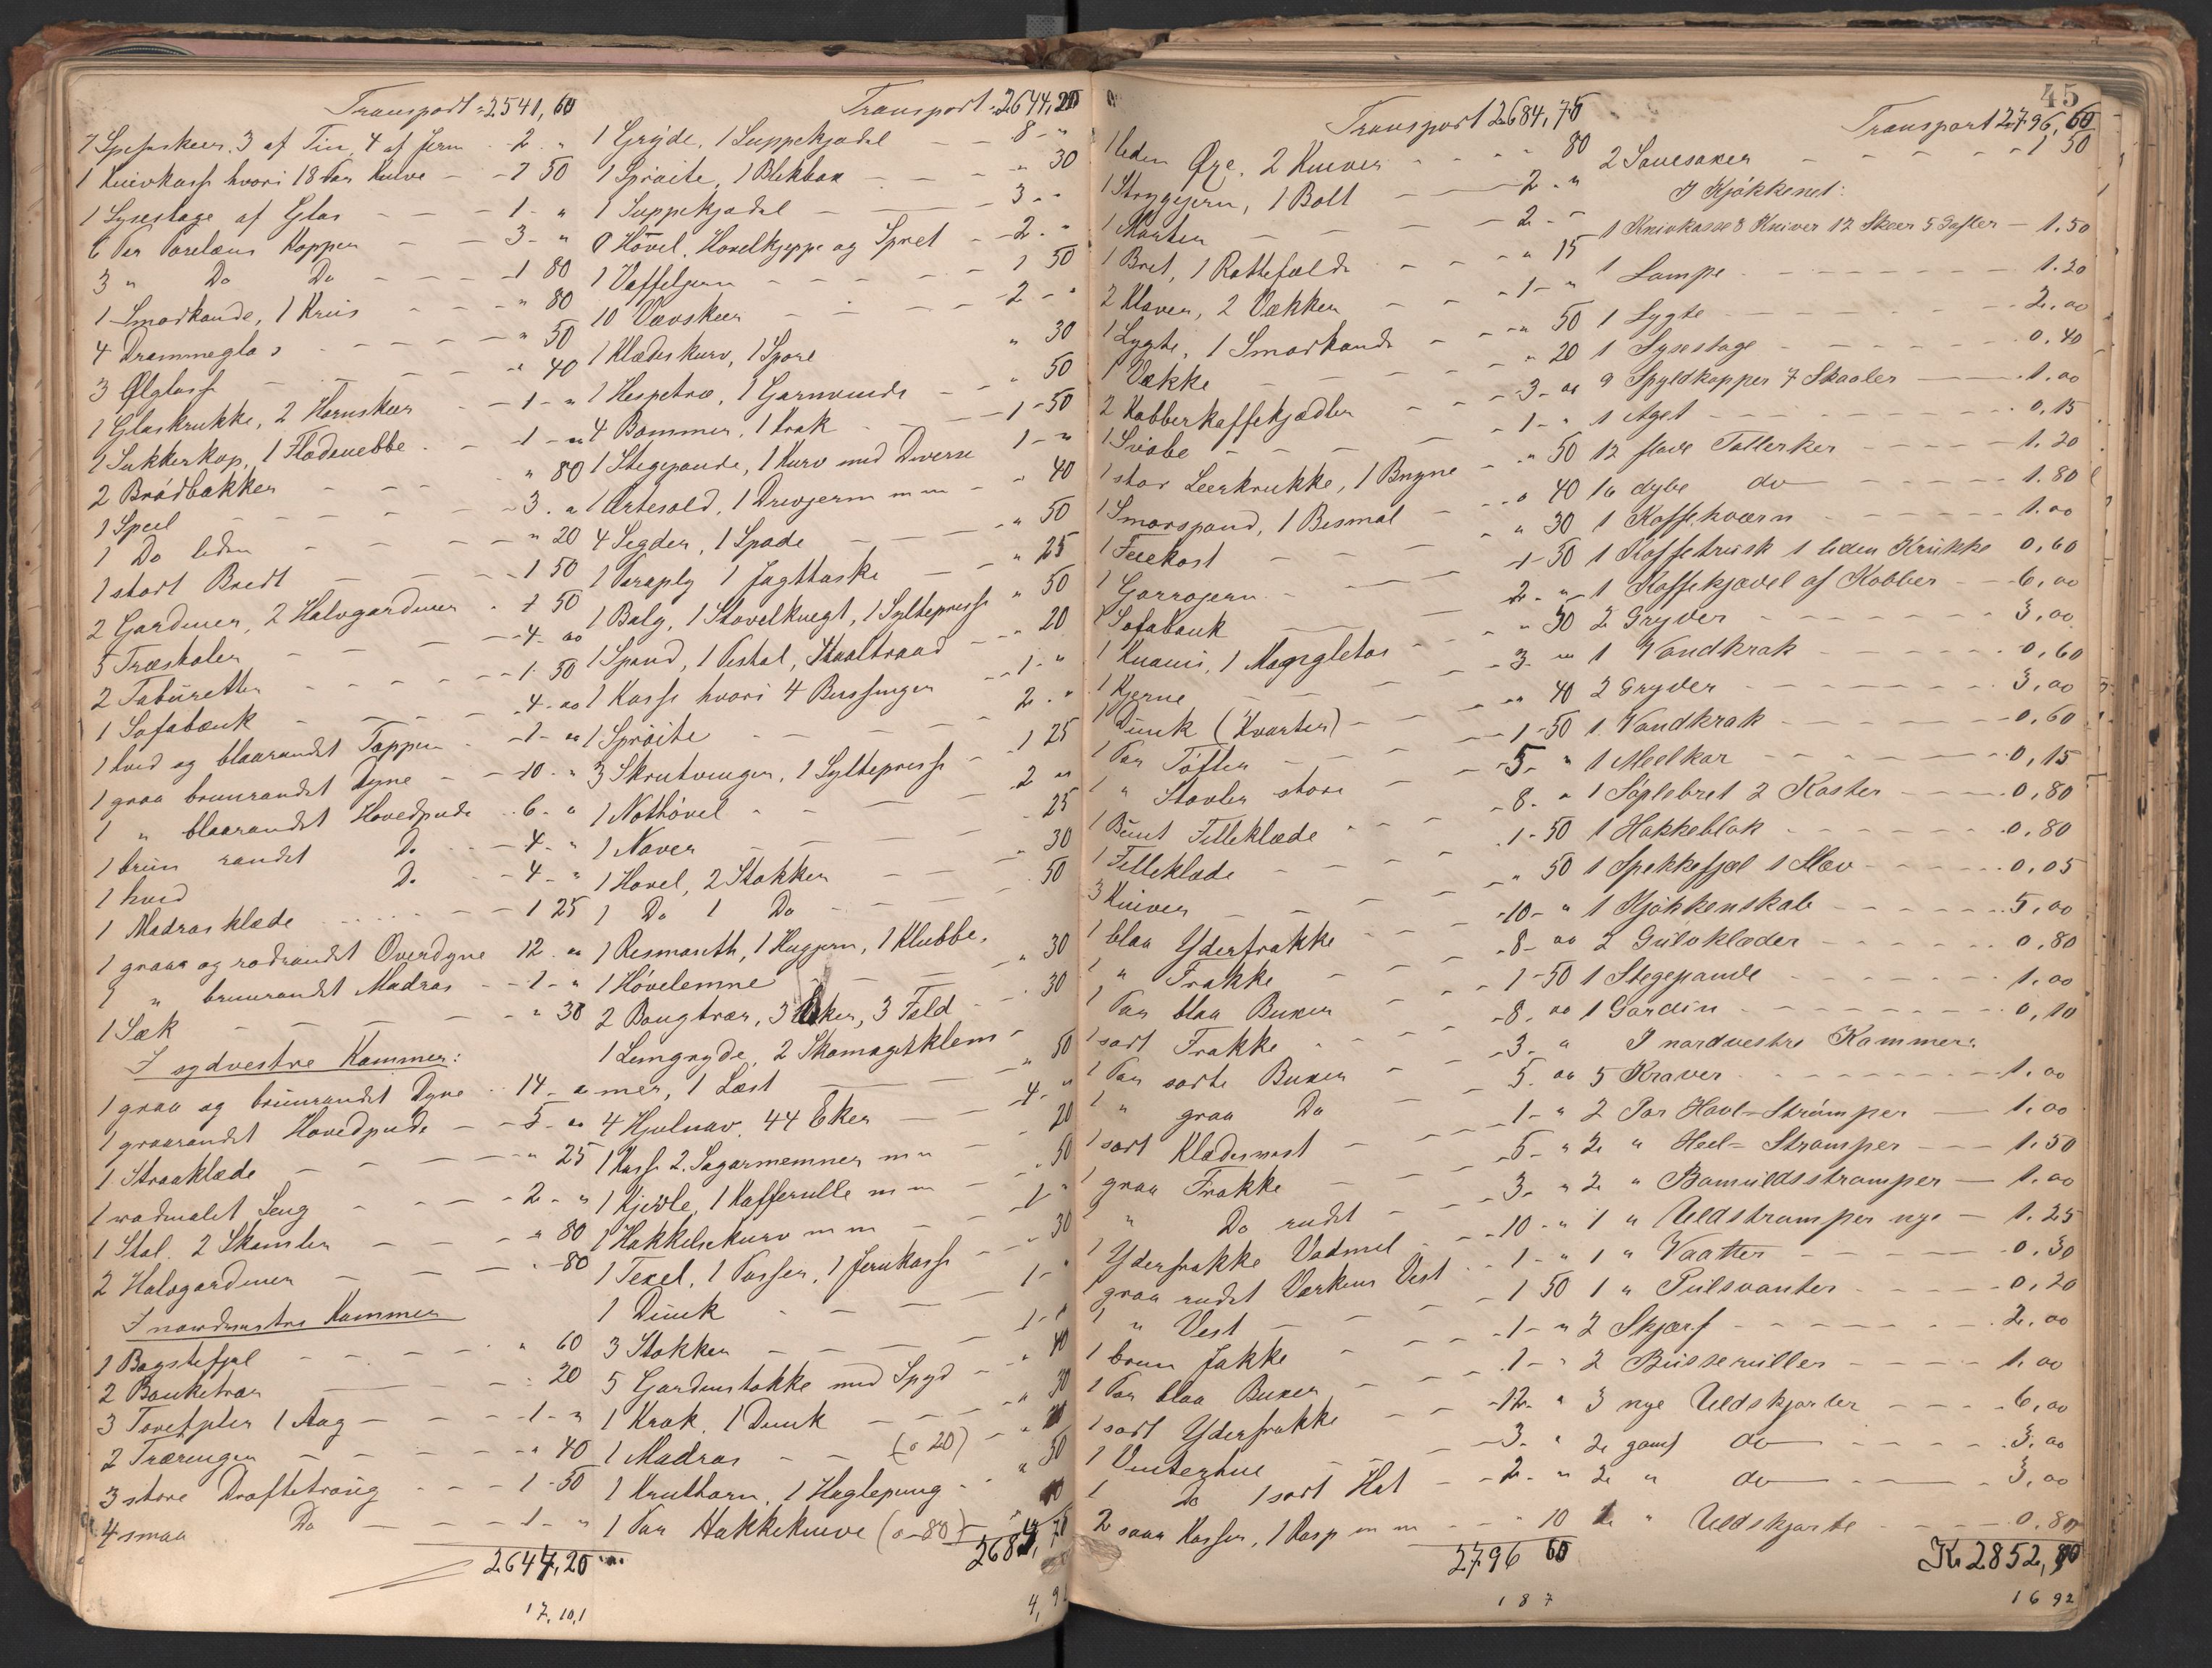 Transport 2541,60
7 Spiseskeer, 3 af Tin, 4 af Jern - 2 "
1 Knivkasse hvori 18 Par Knive - - 7 50
1 Lysestage af Glas - - - 1 - "
6 Par Porelæns Kopper - - 3 - "
3 " Do Do - - - 1 80
1 Smørkande, 1 Krus - - - " 80
4 Drammeglas - - - - " 50
3 Ølglass - - - - " 40
1 Glaskrukke, 2 Hornskeer - - 1 - "
1 Sukkerkop, 1 Flødenebbe - - 1 - "
2 Brødbakker - - - " 80
1 Speil - - - - 3 - "
1 Do liden - - - - " 20
1 stort Bredt - - - - 1 50
2 Gardiner, 2 Halvgardiner - 1 50
5 Træstoler - - - - 4 - "
2 Taburetter - - - - 1 - 50
1 Sofabænk - - - - 4 - "
1 hvid og blaarandet Tæppen - - 1 - "
1 graa brunrandet Dyne - - 10 - "
1 " blaarandet Hovedpude - 6 - "
1 brun randet Do - - 4 - "
1 hvid Do - - 4 - "
1 Madrasklæde - - - 1 25
1 graa og rødrandet Overdyne 12 - "
1 " brunrandet Madras - - 1 - "
1 Sæk - - - - " 30
I sydvestre Kammer:
1 graa og brunrandet Dyne - 14 - "
1 graarandet Hovedpude - - 5 - "
1 Straaklæde - - - - " 25
1 rødmalet Seng - - - 2 - "
1 Stol, 2 Skamler - - - " 80
2 Halvgardiner - - - - 80
I nordvestre Kammer
1 Bagstefjøl - - - - " 60
2 Banketrær - - - 20
3 1 Aag - - - 1 - "
2 Træringer - - - - " 40
3 store Drøftetraug - - - 1 - 50
4 smaa Do - - - 1 - "
2644,20
17,10,1
Transport 2644,20
1 Gryde, 1 Suppekjedel - - 8 - "
1 Sprøite, 1 Blekbox - - - " 30
1 Suppekjedel - - - 3 - "
1 Høvel, Høvelkjeppe og Spret - - 2 - "
1 Vaffeljern - - - - 1 50
10 Vævskeer - - - 2 - "
1 Klædeskurv, 1 Spore " 30
1 Hespetræ, 1 Garnvinde - - " 50
4 Bommer, 1 Krak - - - 1 - 50
1 Stegepande, 1 Kurv med Diverse 1 - "
1 Ertesold, 1 Drevjern m m - " 40
4 Segder, 1 Spade - - " 50
1 Paraply 1 Jagttaske - - " 25
1 Balg, 1 Støvelknegt, 1 Syltepresse " 50
1 Spand, 1 Pistol, Staaltraad - " 20
1 Kasse hvori 4 Bøssinger - - 1 - "
1 Sprøite - - - 2 - "
3 Skrutvinger, 1 Syltepresse - 1 25
1 Nothøvel - - - 2 "
1 Naver - - - 25
1 Høvel, 2 Stokker - - 30
1 Do 1 Do - - - 50
1 Resmanth, 1 Huggjern, 1 Klubbe,
1 Høvelemne - - " 30
2 Bougtrær, 3 Øker, 3 Fæld - 30
1 Limgryde, 2 Skomagerklem-
mer, 1 Læst - - " 50
4 Hjulnav, 44 Eker - - 4 - "
1 Kasse 2 Sagarmemner m m 20
1 Kjevle, 1 Kafferulle m m - 50
1 Hakkelsekurv m m - - 1 "
1 Texel, 1 Passer, 1 Jernkasse - " 30
1 Dunk - - - 1 - "
3 Stokker - - - 1 - "
5 Gardinstokke med Spyd - " 40
1 Krak, 1 Dunk - - - " 30
1 Madras - - (" 20)
1 Kruthorn, 1 Haglepung - " 50
1 Par Hakkeknive ("-80)
2684,75
4,92
45
Transport 2684,75
1 liden Øxe, 2 Kniver - - - " 80
1 Strygejern, 1 Bolt - - 2 - "
1 Morter - - - 2 - "
1 Bret, 1 Rottefælde - - - " 15
2 Klaver, 2 Vækker - - - 1 - "
1 Lygte, 1 Smørkande - - " 50
1 Vække - - - " 20
2 Kobberkaffekjedler - - 3 - "
1 Svøbe - - - - 1 - "
1 stor Leerkrukke, 1 Bryne - " 50
1 Smørspand, 1 Bismar - " 40
1 Feiekost - - - " 30
1 Gorrojern - - - 1 - 50
1 Sofabænk 2 - "
1 Kuani, 1 Mangletøi - " 50
1 Kjerne - - - 3 - "
1 Dunk (Kvarter) - - " 40
1 Par Tøfler - - - 1 - 50
1 " Støvler store - - 5 - "
1 Bunt Filleklæde - - 8 - "
1 Filleklæde - - - 1 - 50
3 Kniver - - - " 50
1 blaa Yderfrakke - - 10 - "
1 " Frakke - - 8 - "
1 Par blaa Buxer - - 1 - 50
1 sort Frakke - - 8 - "
1 Par sorte Buxer - - 3 - "
1 " graa Do - - 5 - "
1 sort Klædesvest - - 1 - "
1 graa Frakke - - 5 - "
1 " Do rudet - - 3 - "
1 Yderfrakke Vadmel - - 10 - "
1 graa rudet Værkens Vest - 1 - "
1 " Vest - - 1 50
1 brun Jakke - - 1 - "
1 Par blaa Buxer - - 1 - "
1 sort Yderfrakke - - 12 - "
1 Vinterhue - - 3 - "
1 Do 1 sort Hat - - 2 - "
2 smaa Kasser, 1 Rasp m m - - " 10
2796 60
1 8 7
Transport 2796,60
2 Sauesaxer - - - - 1 50
I Kjøkkenet:
1 Knivkasse 8 Kniver 12 Skeer 5 Gafler - 1.50
1 Lampe - - - 1.20
1 Lygte - - - 2,00
1 Lysestage - - - 0,40
9 Spylkopper 7 Skaaler - 1,00
1 Aget - - - 0,15
12 flade Tallerker - - - 1.20
10 dybe do - - - 1.80
1 Kaffekværn - - - 1.00
1 Kaffebrusk 1 liden Krukke 0,60
1 Kaffekjedel af Kobber - - 6,00
2 Gryder - - - 3,00
1 Vandkrak - - - 0,60
2 Gryder - - - 3,00
1 Vandkrak - - - 0,60
1 Meelkar - - - 0,15
1 Søplebret 2 Koster - - 0,80
1 Hakkeblok - - - 0,80
1 Spekkefjøl 1 - - 0,05
1 Kjøkkenskab - - - 5,00
2 Gulvklæder - - - 0,80
1 Stegepande - - - 1.00
1 Gardin - - - 0,10
I nordvestre Kammer:
5 Kraver - - - 1,00
2 Par Halv-Strømper - 1,00
2 " Heel-Strømper - - 1.50
2 " Bomuldsstrømper - 1,00
1 " Uldstrømper nye - 1.25
1 " Vaatter - - - 0.30
1 " Pulsvanter - - - 0,20
2 Skjærf - - - 2,00
2 Busseruller - - - 1,00
3 nye Uldskjorter - - - 6,00
2 gaml do - - - 3,00
2 " do - - - 3,00
1 " Uldskjorte - - - 0.80
Kr 2852,90
16 92